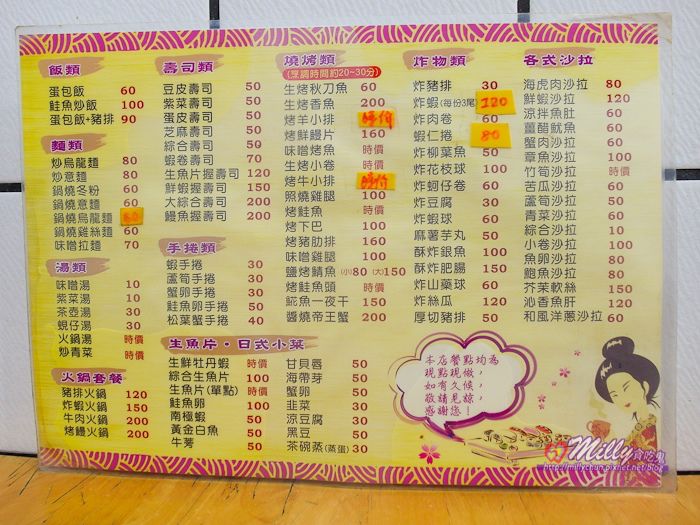 飯類
蛋包飯 60
鮭魚炒飯 100
蛋包飯+豬排 90
麵類
炒烏龍麵 80
炒意麵 80
鍋燒冬粉 60
鍋燒意麵 60
鍋燒烏龍麵 80
鍋燒雞絲麵 60
味噌拉麵 70
湯類
味噌湯 10
紫菜湯 10
茶壺湯 30
蜆仔湯 30
火鍋湯 時價
炒青菜 時價
火鍋套餐
豬排火鍋 120
炸蝦火鍋 150
牛肉火鍋 200
烤鰻火鍋 200
壽司類
豆皮壽司 50
紫菜壽司 50
蛋皮壽司 50
芝麻壽司 50
綜合壽司 50
蝦卷壽司 70
生魚片握壽司 120
鮮蝦握壽司 150
大綜合壽司 200
鰻魚握壽司 200
手捲類
蝦手捲 30
蘆筍手捲 30
蟹卵手捲 30
鮭魚卵手捲 50
松葉蟹手捲 40
生魚片・日式小菜
生鮮牡丹蝦 時價
綜合生魚片 100
生魚片(單點) 時價
鮭魚卵 100
南極蝦 50
黃金白魚 50
牛蒡 50
甘貝唇 50
海帶芽 50
蟹卵 50
韭菜 30
涼豆腐 30
黑豆 50
茶碗蒸(蒸蛋) 30
燒烤類
(烹調時間約20~30分)
生烤秋刀魚 60
生烤香魚 200
烤羊小排 時價
烤鮮鰻片 160
味噌烤魚 時價
生烤小卷 時價
烤牛小排 時價
照燒雞腿 100
烤鮭魚 時價
烤下巴 100
烤豬肋排 160
味噌雞腿 100
鹽烤鯖魚 (小)80 (大)150
烤鮭魚頭 時價
鯱魚一夜干 150
醬燒帝王蟹 200
炸物類
炸豬排 30
炸蝦(每份3尾) 120
炸肉卷 60
蝦仁捲 80
炸柳葉魚 50
炸花枝球 100
炸蚵仔卷 60
炸豆腐 30
炸蝦球 60
麻薯芋丸 50
酥炸銀魚 100
酥炸肥腸 150
炸山藥球 60
炸絲瓜 120
厚切豬排 50
各式沙拉
海虎肉沙拉 80
鮮蝦沙拉 120
涼拌魚肚 60
薑醋魷魚 60
蟹肉沙拉 60
章魚沙拉 100
竹筍沙拉 時價
苦瓜沙拉 60
蘆筍沙拉 50
青菜沙拉 60
綜合沙拉 10
小卷沙拉 100
魚卵沙拉 80
鮑魚沙拉 80
芥茉軟絲 150
沁香魚肝 120
和風洋蔥沙拉 60
本店餐點均為
現點現做，
如有久候，
敬請見諒，
感謝您！
Milly貪吃鬼
http://millychun.pixnet.net/blog